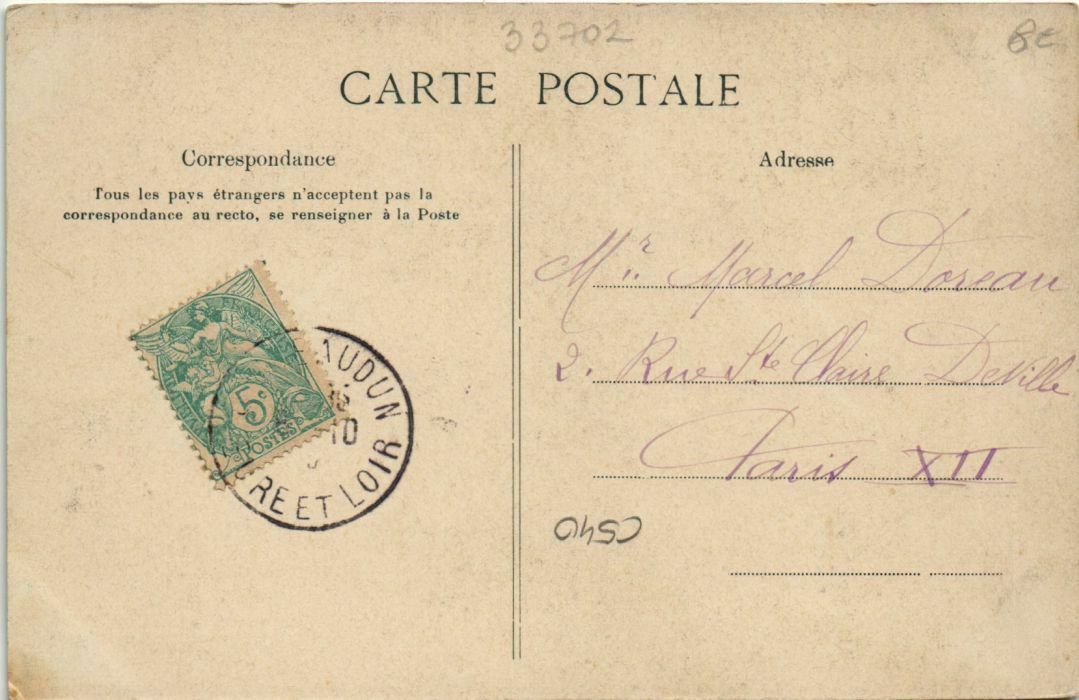 33702
8€
CARTE POSTALE
Correspondance
Tous les pays étrangers n'acceptent pas la
correspondance au recto, se renseigner à la Poste
5c
POSTES
AUDUN
10
URE ET LOIR
Adresse
Mr. Marcel Doreau
2. Rue Ste Claire DeVille
Paris XII
C540